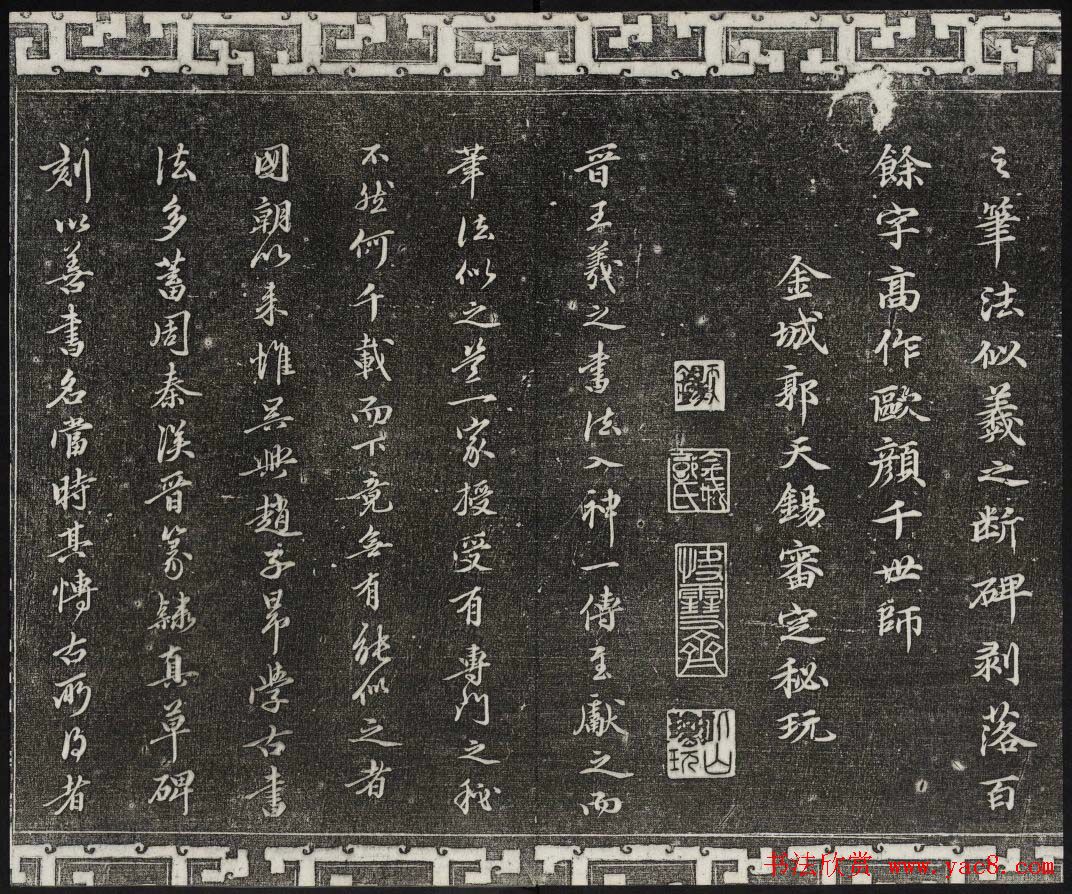 之筆法似羲之断碑剥落百
餘字高作歐顔千世師
金城郭天錫審定秘玩
金城郭氏
快雪齋
晉王羲之書法入神一傳至獻之而
筆法似之是一家授受有專門之秘
不然何千載而下竟無有能似之者
國朝以来惟吴興趙子昂學古書
法多蓄周秦漢晉篆隷真草碑
刻以善書名當時其慱古所得者
书法欣赏 www.yac8.com